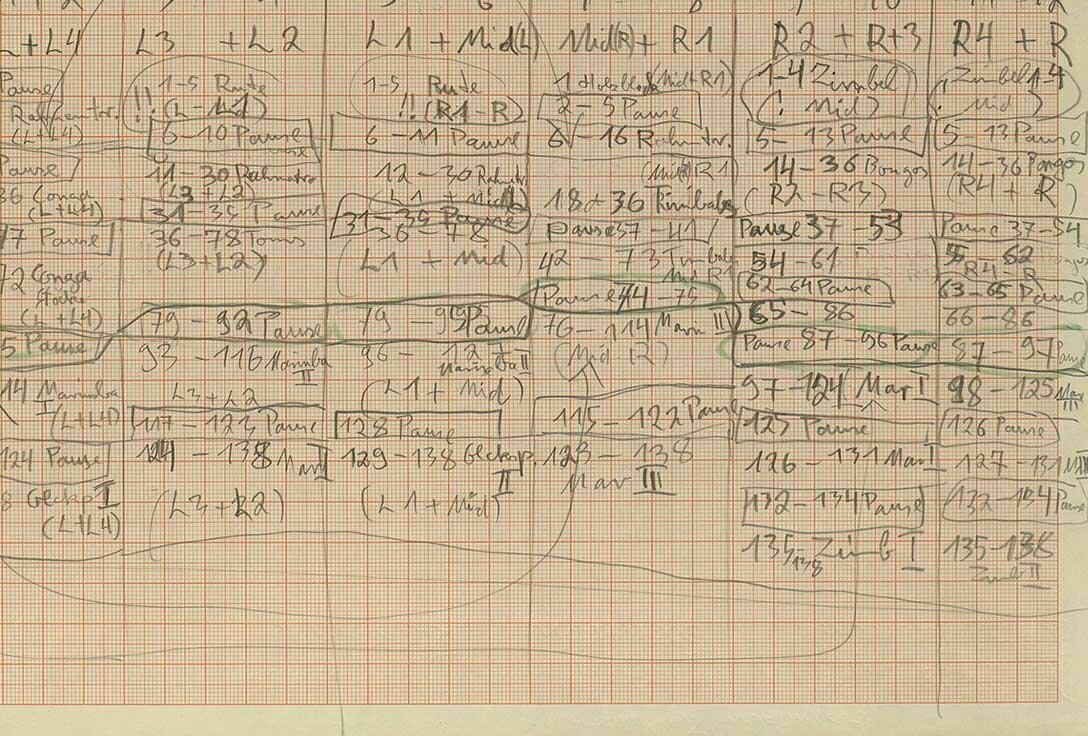 L+L4
Pause
(L+L4)
Pause
36 Conga
(L+L4)
Pause
72 Conga
(L+L4)
5 Pause
14 Marimba
I
(L+L4)
124 Pause
8 Glcksp I
(L+L4)
L3 + L2
1-5 Rute
!! (L-L1)
6-10 Pause
11-30 Rahmentr.
(L3+L2)
31-35 Pause
36-78 Toms
(L3+L2)
79-92 Pause
93-116 Marimba
II
L3+L2
117-123 Pause
124-138 Mar II
(L3+L2)
L1 + Mid(L)
1-5 Rute
!! (R1-R)
6-11 Pause
12-30 Rahmtr.
(L1 + Mid)
31-35 Pause
36-78
(L1 + Mid)
79-95 Pause
96-
(L1 + Mid)
128 Pause
129-138 Glcksp.
II
(L1 + Mid)
Mid(R) + R1
(Mid+R1)
2-5 Pause
6-16 Rahmtr.
(Mid R1)
18+36 Timbales
Pause 37-41
42-73 Timbales
Mid R1
Pause 74-75
76-114 Marim III
(Mid
115-122 Pause
123-138
Mar III
R2 + R+3
1-4 Zimbel
(! Mid)
5-13 Pause
14-36 Bongos
(R2-R3)
Pause 37-53
54-61
62-64 Pause
65-86
Pause 87-96 Pause
97-124 Mar I
125 Pause
126-131 Mar I
132-134 Pause
135-Zimb I
138
R4 + R
Zimbel 1-4
(! Mid)
5-13 Pause
14-36 Bongos
(R4 + R)
Pause 37-54
55-62
R4-R
63-65 Pause
66-86
87-97 Pause
98-125 Mar
III
126 Pause
127-131
132-134 Pause
135-138
Zimb II